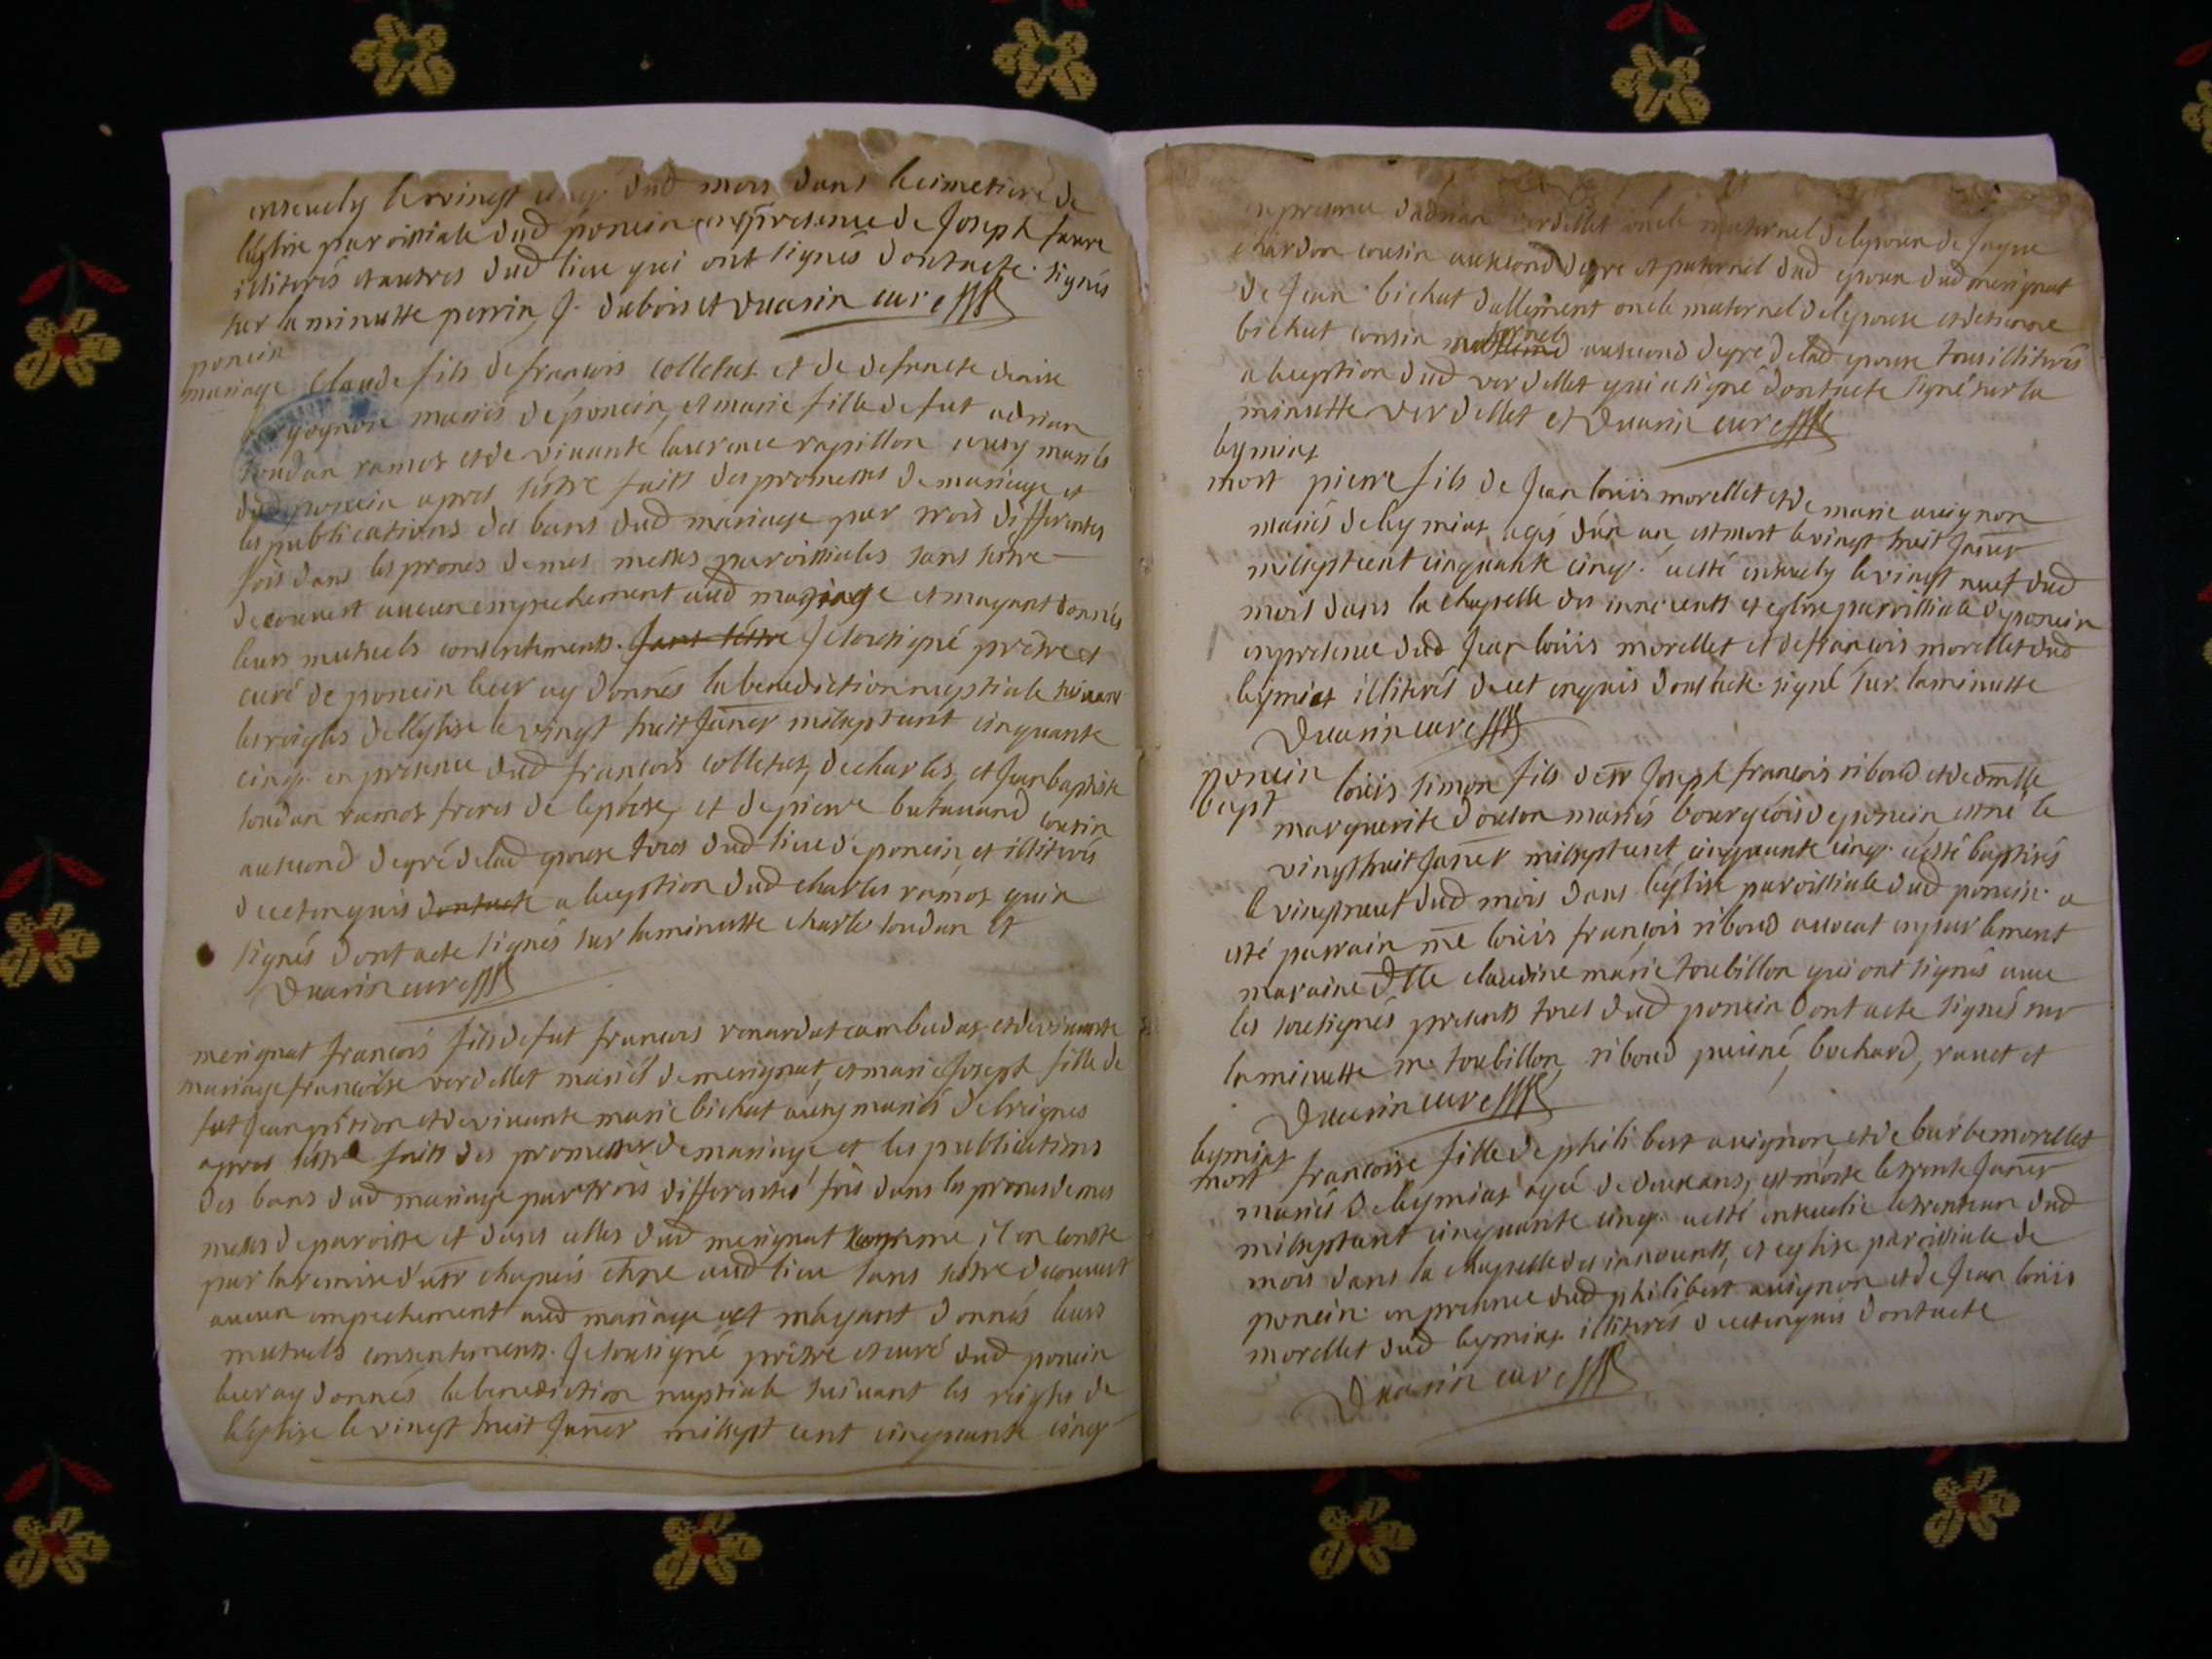 ensevely le vingt cinq dud mois dans le cimetiere de
léglise paroissiale dud poncin en presence de Joseph faure
illiterés et autres dud lieu qui ont signés dont acte. signés
sur la minutte perrin, J. dubois et Duarin curé
poncin
mariage Claude fils de francois colletat et de defuncte denise
gognon mariés de poncin, et marie fille de fut adrian
soudan ramos et de vivante laurence rapillon aussy mariés
dud poncin apres s'éstre faits des promesses de mariage et
les publications des bans dud mariage par trois differentes
fois dans les prones de mes messes paroissiales sans s'être
decouvert aucun empechement aud mariage et mayant donnés
leurs mutuels consentements. Je sousigné prêtre et
curé de poncin leur ay donnés la benediction nuptiale suivant
les reigles de l'eglise le vingt huit Janer mil sept cent cinquante
cinq. en presence dud francois colletat, de charles, et Jean baptiste
soudan ramos freres de lepouse, et de pierre butavand cousin
au second degré de lad epouse tous dud lieu de poncin et illiterés
de ce enquis dont acte a lexeption dud charles ramos qui a
signés dont acte signés sur la minutte charle soudan et
Duarin curé
merignat francois fils de fut francois renardat cambudat, et de vivante
mariage francoise verdellet mariés de merignat, et marie Joseph fille de
fut Jean et de vivante marie bichat aussy mariés de
apres s'estre faits des promesses de mariage et les publications
des bans dud mariage par trois differentes fois dans les prones de mes
messes de paroisse et dans celles dud merignat comme il en conste
par la remise d'usr chapuis aud lieu sans s'être decouvert
aucun empechement aud mariage et mayant donnés leurs
mutuels consentements. Je sousigné prêtre et curé dud poncin
leur ay donnés la benediction nuptiale suivant les reigles de
l'églize le vingt huit Janer mil sept cent cinquante cinq
en presence dadrian verdellet oncle maternel de lepoux de Jaque
chardon cousin au second degre et paternel dud epoux dud merignat
de Jean bichat dallement oncle maternel de lepouse et de
bichat cousin maternel au second degre de lad epouse tous illiterés
a lexeption dud verdellet qui a signé dont acte signé sur la
minutte verdellet et Duarin curé
leymiat
mort pierre fils de Jean louis morellet et de marie avignon
mariés de leymiat agés d'un an, est mort le vingt huit Janer
mil sept cent cinquante cinq. a esté ensevely le vingt neuf dud
mois dans la chapelle des innocents et eglise paroissiale de poncin
en presence dud Jean louis morellet et de francois morellet dud
leymiat illiterés de cet enquis dont acte. signé sur la minutte
Duarin curé
poncin
bapt louis simon fils de sr Joseph francois riboud et de dmlle
marguerite douton mariés bourgeois de poncin, est né le
vingt huit Janer mil sept cent cinquante cinq. a esté baptisés
le vingt neuf dud mois dans léglise paroissiale dud poncin. a
esté parrain me louis françois riboud avocat en parlement
maraine dlle claudine marie toubillon qui ont signés avec
les sousignés presents tous dud poncin dont acte signés sur
la minutte m. toubillon, riboud puisné, bochard, ravet et
Duarin curé
leymiat
mort francoise fille de philibert avignon, et de barbe morellet
mariés de leymiat agée de deux ans, est morte le trente Janer
mil sept cent cinquante cinq. a esté ensevelie le trente un dud
mois dans la chapelle des innocents, et eglise paroissiale de
poncin. en presence dud philibert avignon et de Jean louis
morellet dud leymiat illiterés de cet enquis dont acte
Duarin curé